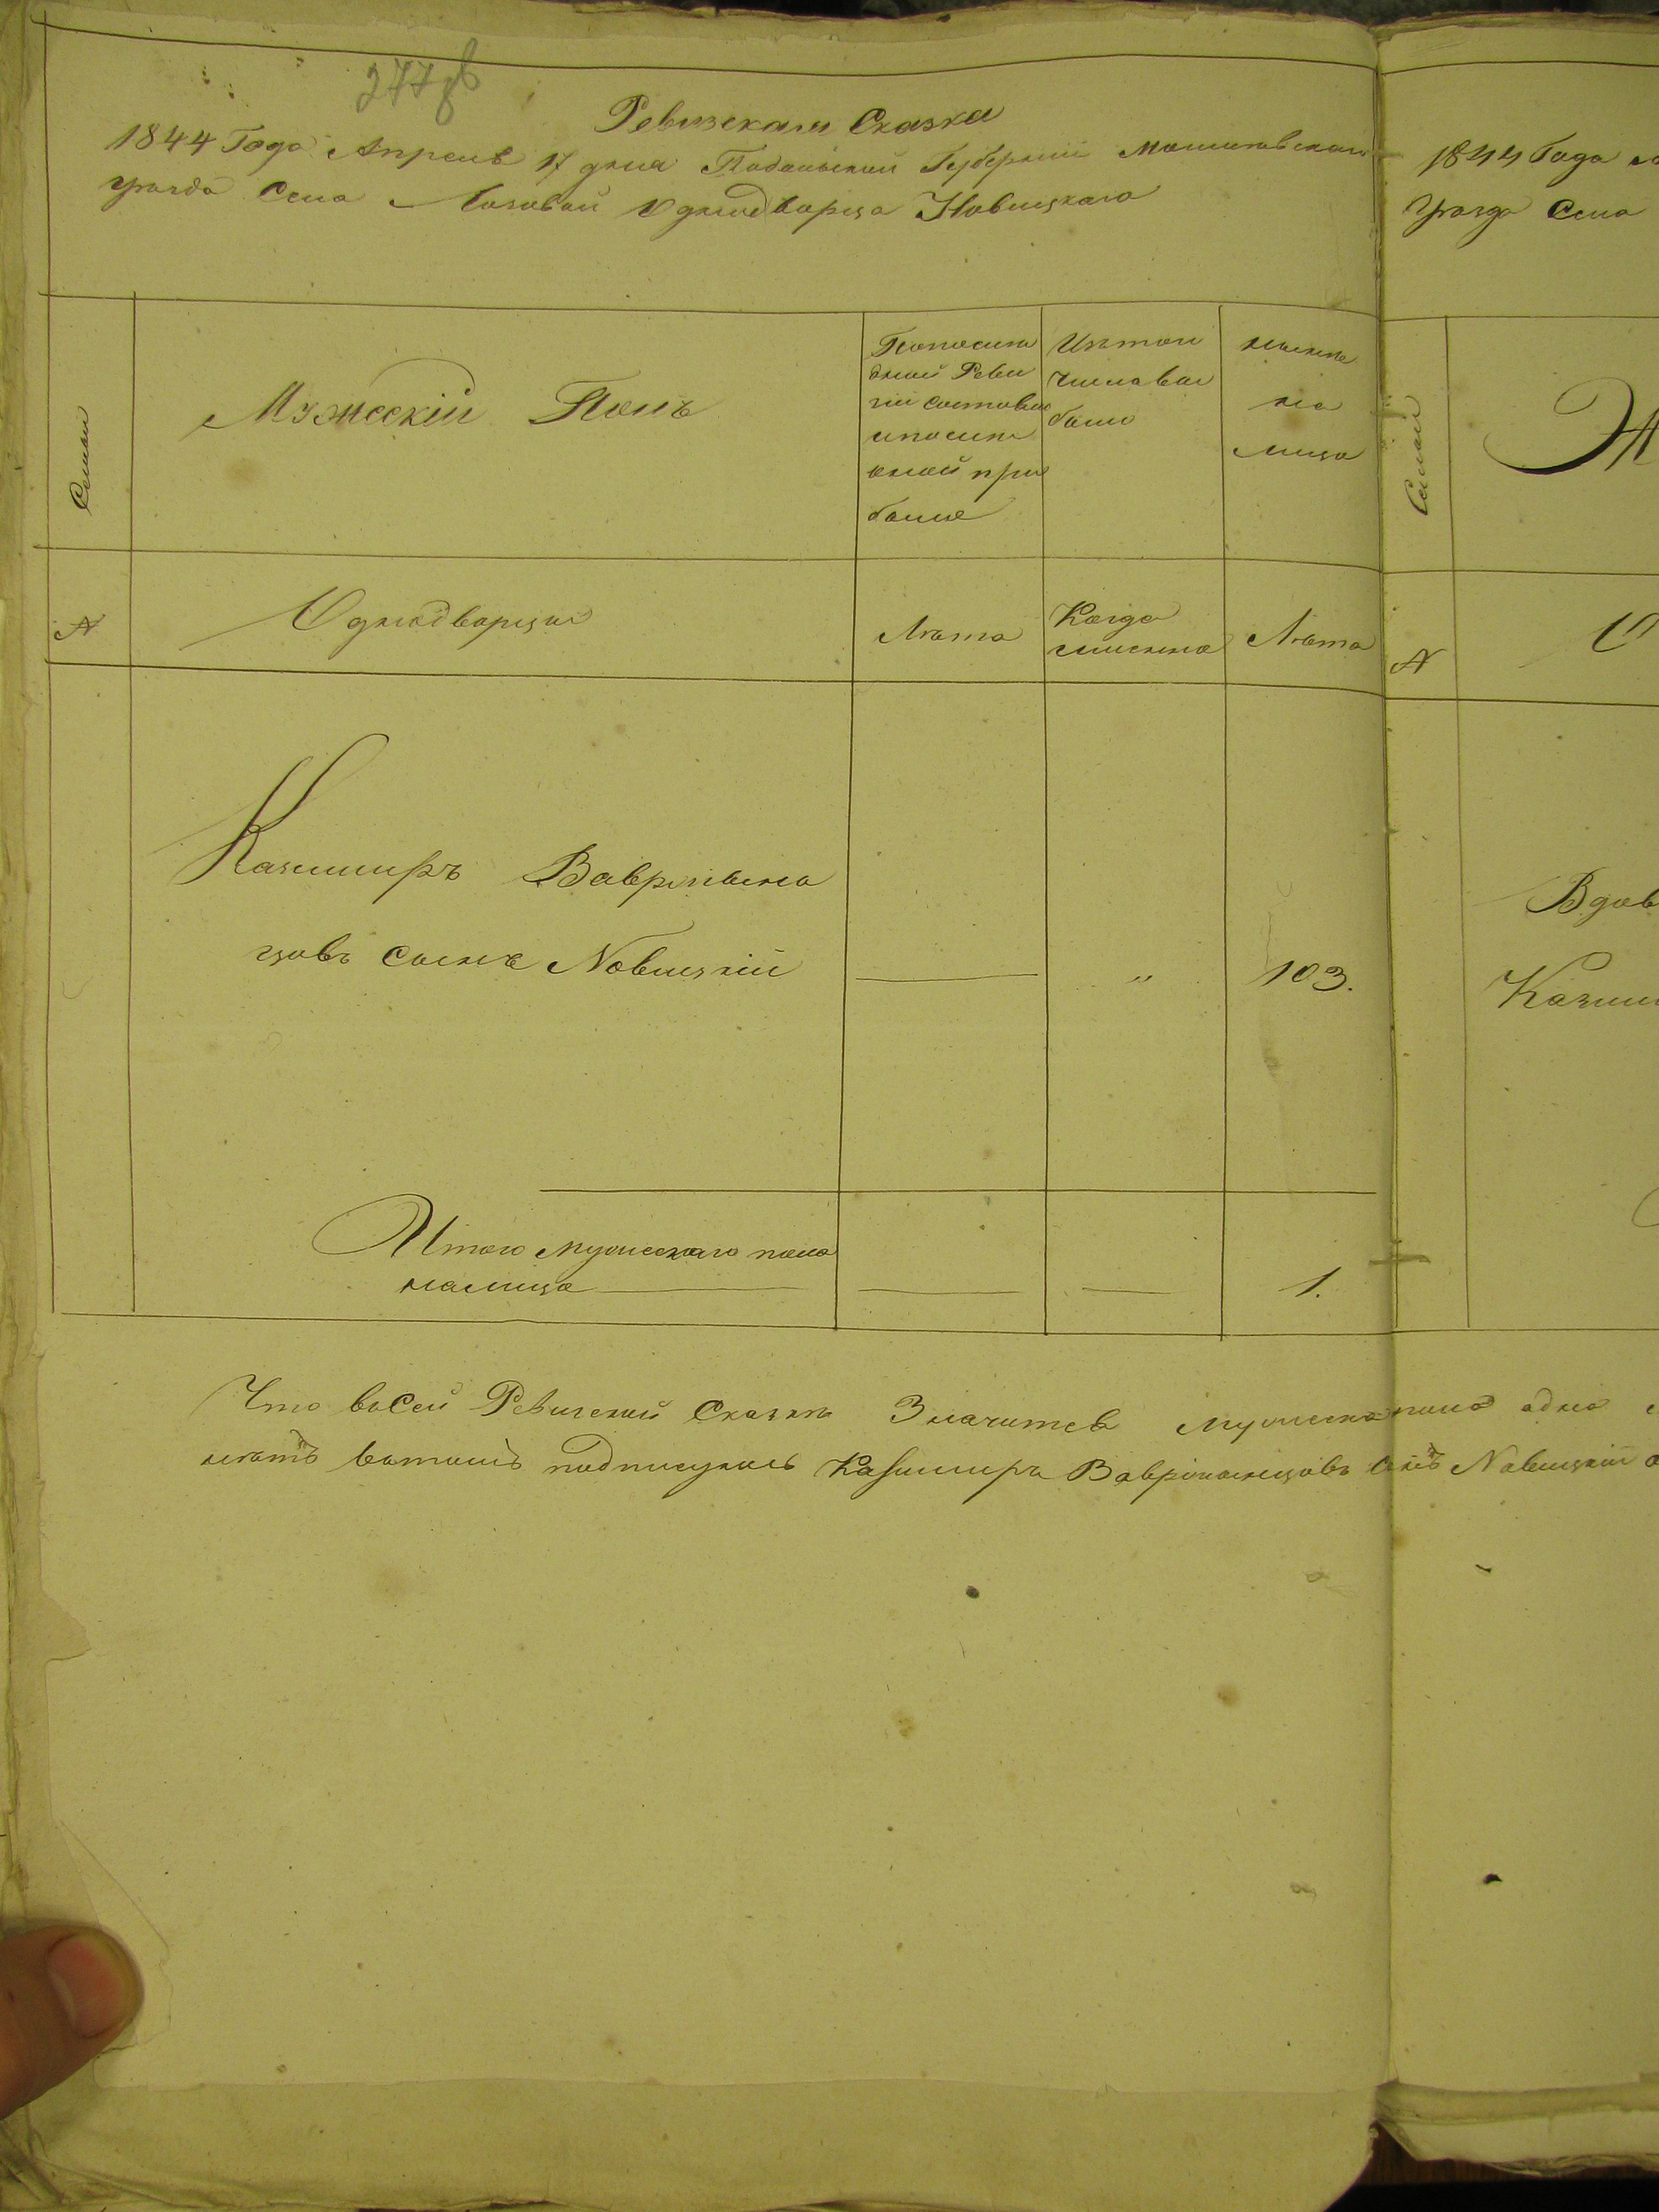 277
Ревизская Сказка
1844 Года Апреля 17 дня Подольской Губернии Могилевскаго
уезда Села Лозовой Однодворца Новицкаго
Семьи
Мужескій Полъ
По последней Ревизіи состояло и после оной прибыло
Изъ того числа выбыло
Ныне на лицо
№
Однодворцы
Лѣта
Когда именно
Лѣта
Казимиръ Вавринына
цовъ Сынъ Новицкій — „ 103.
Итого мужескаго пола
налицо — — — 1.
Что в сей Ревиской Сказкѣ Значится мужеска пола одна
вътомъ подписуюсь Казимиръ Вавринынцовъ Сынъ Новицкій
1844 Года
Уезда Села
Семьи
Ж
№
О
Вдов
Казим